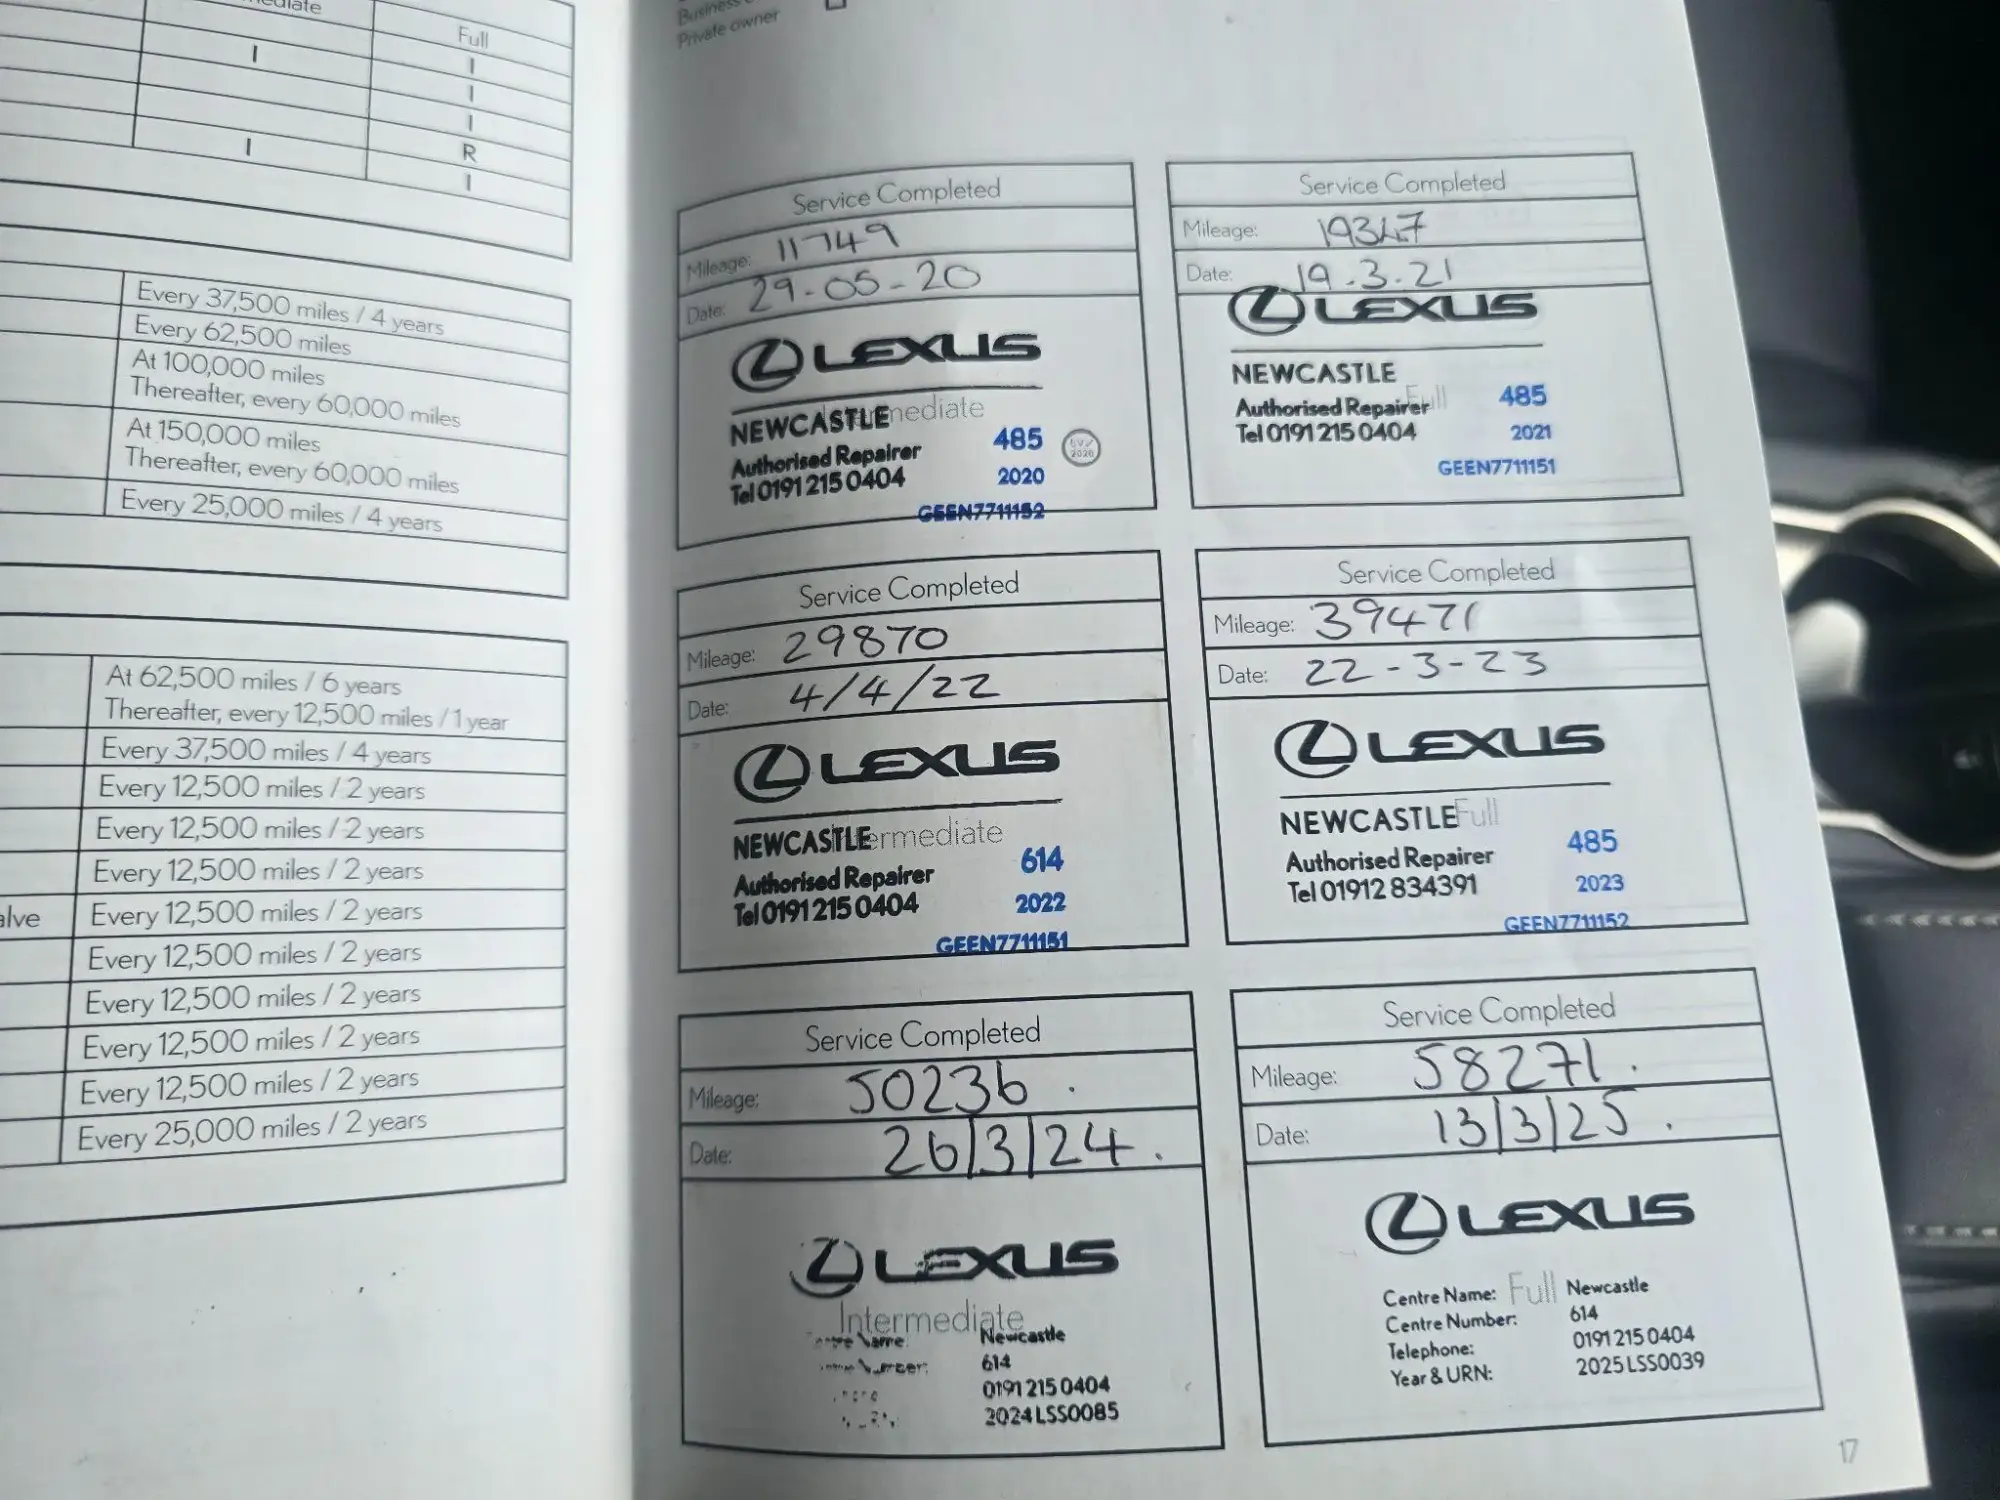 Full
I
I
I
I
R
I
I
Every 37,500 miles / 4 years
Every 62,500 miles
At 100,000 miles
Thereafter, every 60,000 miles
At 150,000 miles
Thereafter, every 60,000 miles
Every 25,000 miles / 4 years
At 62,500 miles / 6 years
Thereafter, every 12,500 miles / 1 year
Every 37,500 miles / 4 years
Every 12,500 miles / 2 years
Every 12,500 miles / 2 years
Every 12,500 miles / 2 years
Every 12,500 miles / 2 years
Every 12,500 miles / 2 years
Every 12,500 miles / 2 years
Every 12,500 miles / 2 years
Every 12,500 miles / 2 years
Every 25,000 miles / 2 years
Business
Private owner
Service Completed
Mileage: 11749
Date: 29-05-20
LEXUS
Intermediate
NEWCASTLE
Authorised Repairer 485
Tel 0191 215 0404 2020
GEEN7711152
Service Completed
Mileage: 19347
Date: 19.3.21
LEXUS
NEWCASTLE
Full
Authorised Repairer 485
Tel 0191 215 0404 2021
GEEN7711151
Service Completed
Mileage: 29870
Date: 4/4/22
LEXUS
Intermediate
NEWCASTLE
Authorised Repairer 614
Tel 0191 215 0404 2022
GEEN7711151
Service Completed
Mileage: 39471
Date: 22-3-23
LEXUS
NEWCASTLE Full
Authorised Repairer 485
Tel 01912 834391 2023
GEEN7711152
Service Completed
Mileage: 50236.
Date: 26/3/24.
LEXUS
Intermediate
Newcastle
614
0191 215 0404
2024LSS0085
Service Completed
Mileage: 58271.
Date: 13/3/25.
LEXUS
Full
Centre Name: Newcastle
Centre Number: 614
Telephone: 0191 215 0404
Year & URN: 2025LSS0039
17